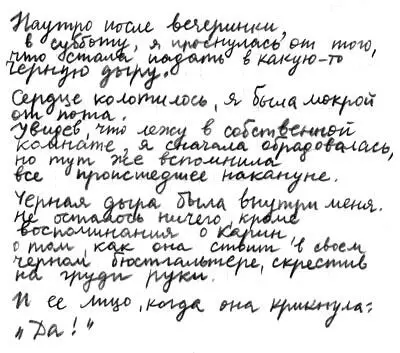 Наутро после вечеринки,
в субботу, я проснулась от того,
что стала падать в какую-то
черную дыру.
Сердце колотилось, я была мокрой
от пота.
Увидев, что лежу в собственной
комнате, я сначала обрадовалась,
но тут же вспомнила
все происшедшее накануне.
Черная дыра была внутри меня.
Не осталось ничего, кроме
воспоминания о Карин,
о том, как она стоит в своем
черном бюстгальтере, скрестив
на груди руки.
И ее лицо, когда она крикнула:
„Да!“